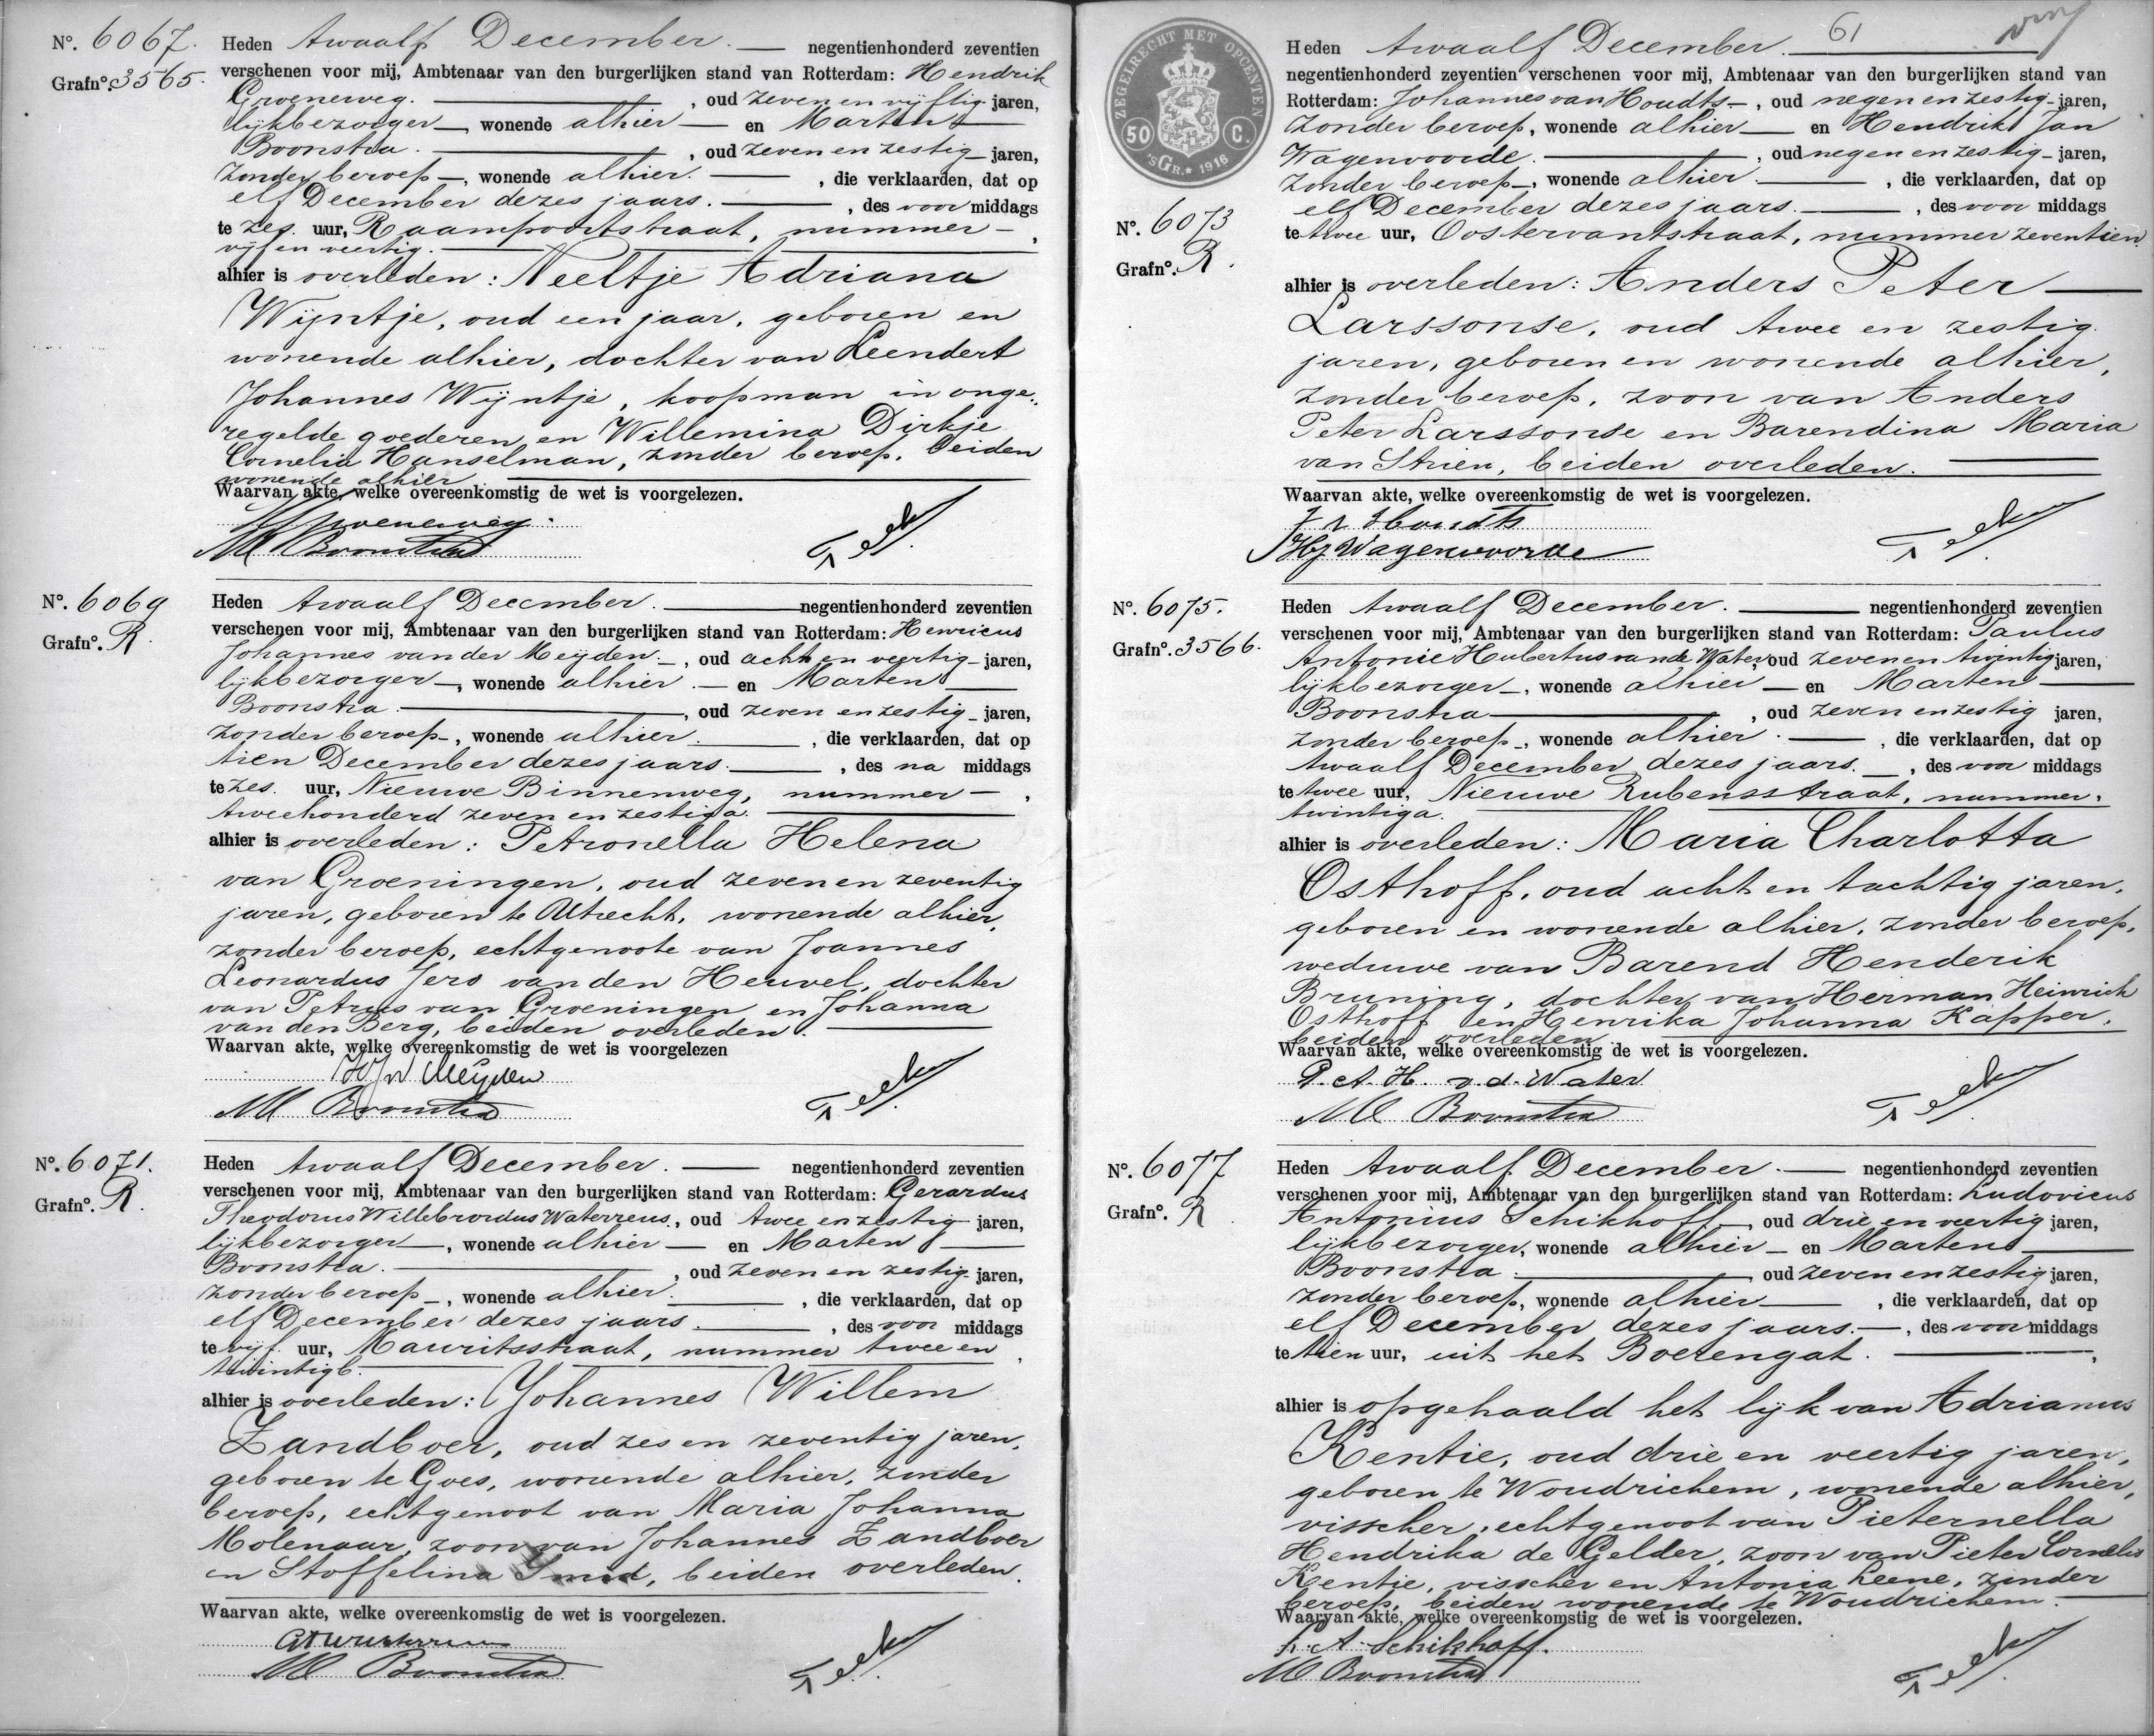 Nº. 6067.
Grafnº. 3565.
Heden twaalf December. negentienhonderd zeventien
verschenen voor mij, Ambtenaar van den burgerlijken stand van Rotterdam: Hendrik
Groeneweg. , oud zeven en vijftig jaren,
lijkbezorger, wonende alhier en Marten
Boonstra. , oud zeven en zestig jaren,
zonder beroep, wonende alhier. , die verklaarden, dat op
elf December dezes jaars. , des voor middags
te zes. uur, Raampoortstraat, nummer
vijf en veertig. ,
alhier is overleden: Neeltje Adriana
Wijntje, oud een jaar, geboren en
wonende alhier, dochter van Leendert
Johannes Wijntje, koopman in onge-
regelde goederen en Willemina Dirkje
Cornelia Hanselman, zonder beroep, beiden
wonende alhier
Waarvan akte, welke overeenkomstig de wet is voorgelezen.
H Groeneweg.
M Boonstra
Nº. 6069
Grafnº. R.
Heden twaalf December. negentienhonderd zeventien
verschenen voor mij, Ambtenaar van den burgerlijken stand van Rotterdam: Henricus
Johannes van der Meijden , oud acht en veertig jaren,
lijkbezorger, wonende alhier. en Marten
Boonstra. , oud zeven en zestig jaren,
zonder beroep, wonende alhier. , die verklaarden, dat op
tien December dezes jaars. , des na middags
te zes. uur, Nieuwe Binnenweg, nummer ,
tweehonderd zeven en zestig a.
alhier is overleden: Petronella Helena
van Groeningen, oud zeven en zeventig
jaren, geboren te Utrecht, wonende alhier,
zonder beroep, echtgenoote van Joannes
Leonardus Jero van den Heuvel, dochter
van Petrus van Groeningen en Johanna
van den Berg, beiden overleden.
Waarvan akte, welke overeenkomstig de wet is voorgelezen
HJvd Meijden
M Boonstra
Nº. 6071.
Grafnº. R.
Heden twaalf December. negentienhonderd zeventien
verschenen voor mij, Ambtenaar van den burgerlijken stand van Rotterdam: Gerardus
Theodorus Willebrordus Waterreus, oud twee en zestig jaren,
lijkbezorger, wonende alhier en Marten
Boonstra. , oud zeven en zestig jaren,
zonder beroep, wonende alhier. , die verklaarden, dat op
elf December dezes jaars. , des voor middags
te vijf. uur, Mauritsstraat, nummer twee en ,
twintig b.
alhier is overleden: Johannes Willem
Zandboer, oud zes en zeventig jaren,
geboren te Goes, wonende alhier, zonder
beroep, echtgenoot van Maria Johanna
Molenaar, zoon van Johannes Zandboer
en Stoffelina Smid, beiden overleden.
Waarvan akte, welke overeenkomstig de wet is voorgelezen.
M Boonstra
61
ZEGELRECHT MET OPCENTEN
50 C.
'sGR. 1916
Nº. 6073
Grafnº. R.
Heden twaalf December.
negentienhonderd zeventien verschenen voor mij, Ambtenaar van den burgerlijken stand van
Rotterdam: Johannes van Houdts , oud negen en zestig jaren,
zonder beroep, wonende alhier en Hendrik Jan
Wagenvoorde. , oud negen en zestig jaren,
zonder beroep, wonende alhier. , die verklaarden, dat op
elf December dezes jaars. , des voor middags
te twee uur, Oostervantstraat, nummer zeventien,
alhier is overleden: Anders Peter
Larssonse, oud twee en zestig
jaren, geboren en wonende alhier,
zonder beroep, zoon van Anders
Peter Larssonse en Barendina Maria
van Strien, beiden overleden.
Waarvan akte, welke overeenkomstig de wet is voorgelezen.
J v Houdts
HJ Wagenvoorde
Nº. 6075.
Grafnº. 3566.
Heden twaalf December. negentienhonderd zeventien
verschenen voor mij, Ambtenaar van den burgerlijken stand van Rotterdam: Paulus
Antonie Hubertus van de Water, oud zeven en twintig jaren,
lijkbezorger, wonende alhier en Marten
Boonstra , oud zeven en zestig jaren,
zonder beroep, wonende alhier. , die verklaarden, dat op
twaalf December dezes jaars. , des voor middags
te twee uur, Nieuwe Rubensstraat, nummer
twintig a.
alhier is overleden: Maria Charlotta
Osthoff, oud acht en tachtig jaren,
geboren en wonende alhier, zonder beroep,
weduwe van Barend Henderik
Bruning, dochter van Herman Heinrich
Osthoff en Henrika Johanna Kapper,
beiden overleden
Waarvan akte, welke overeenkomstig de wet is voorgelezen.
P. A. H. v. d. Water
M Boonstra
Nº. 6077
Grafnº. R
Heden twaalf December. negentienhonderd zeventien
verschenen voor mij, Ambtenaar van den burgerlijken stand van Rotterdam: Ludovicus
Antonius Schikhoff , oud drie en veertig jaren,
lijkbezorger, wonende alhier en Marten
Boonstra. oud zeven en zestig jaren,
zonder beroep, wonende alhier , die verklaarden, dat op
elf December dezes jaars. , des voor middags
te tien uur, uit het Boerengat. ,
alhier is opgehaald het lijk van Adrianus
Kentie, oud drie en veertig jaren,
geboren te Woudrichem, wonende alhier,
visscher, echtgenoot van Pieternella
Hendrika de Gelder, zoon van Pieter Cornelis
Kentie, visscher en Antonia Leene, zonder
beroep, beiden wonende te Woudrichem.
Waarvan akte, welke overeenkomstig de wet is voorgelezen.
L. A. Schikhoff.
M Boonstra